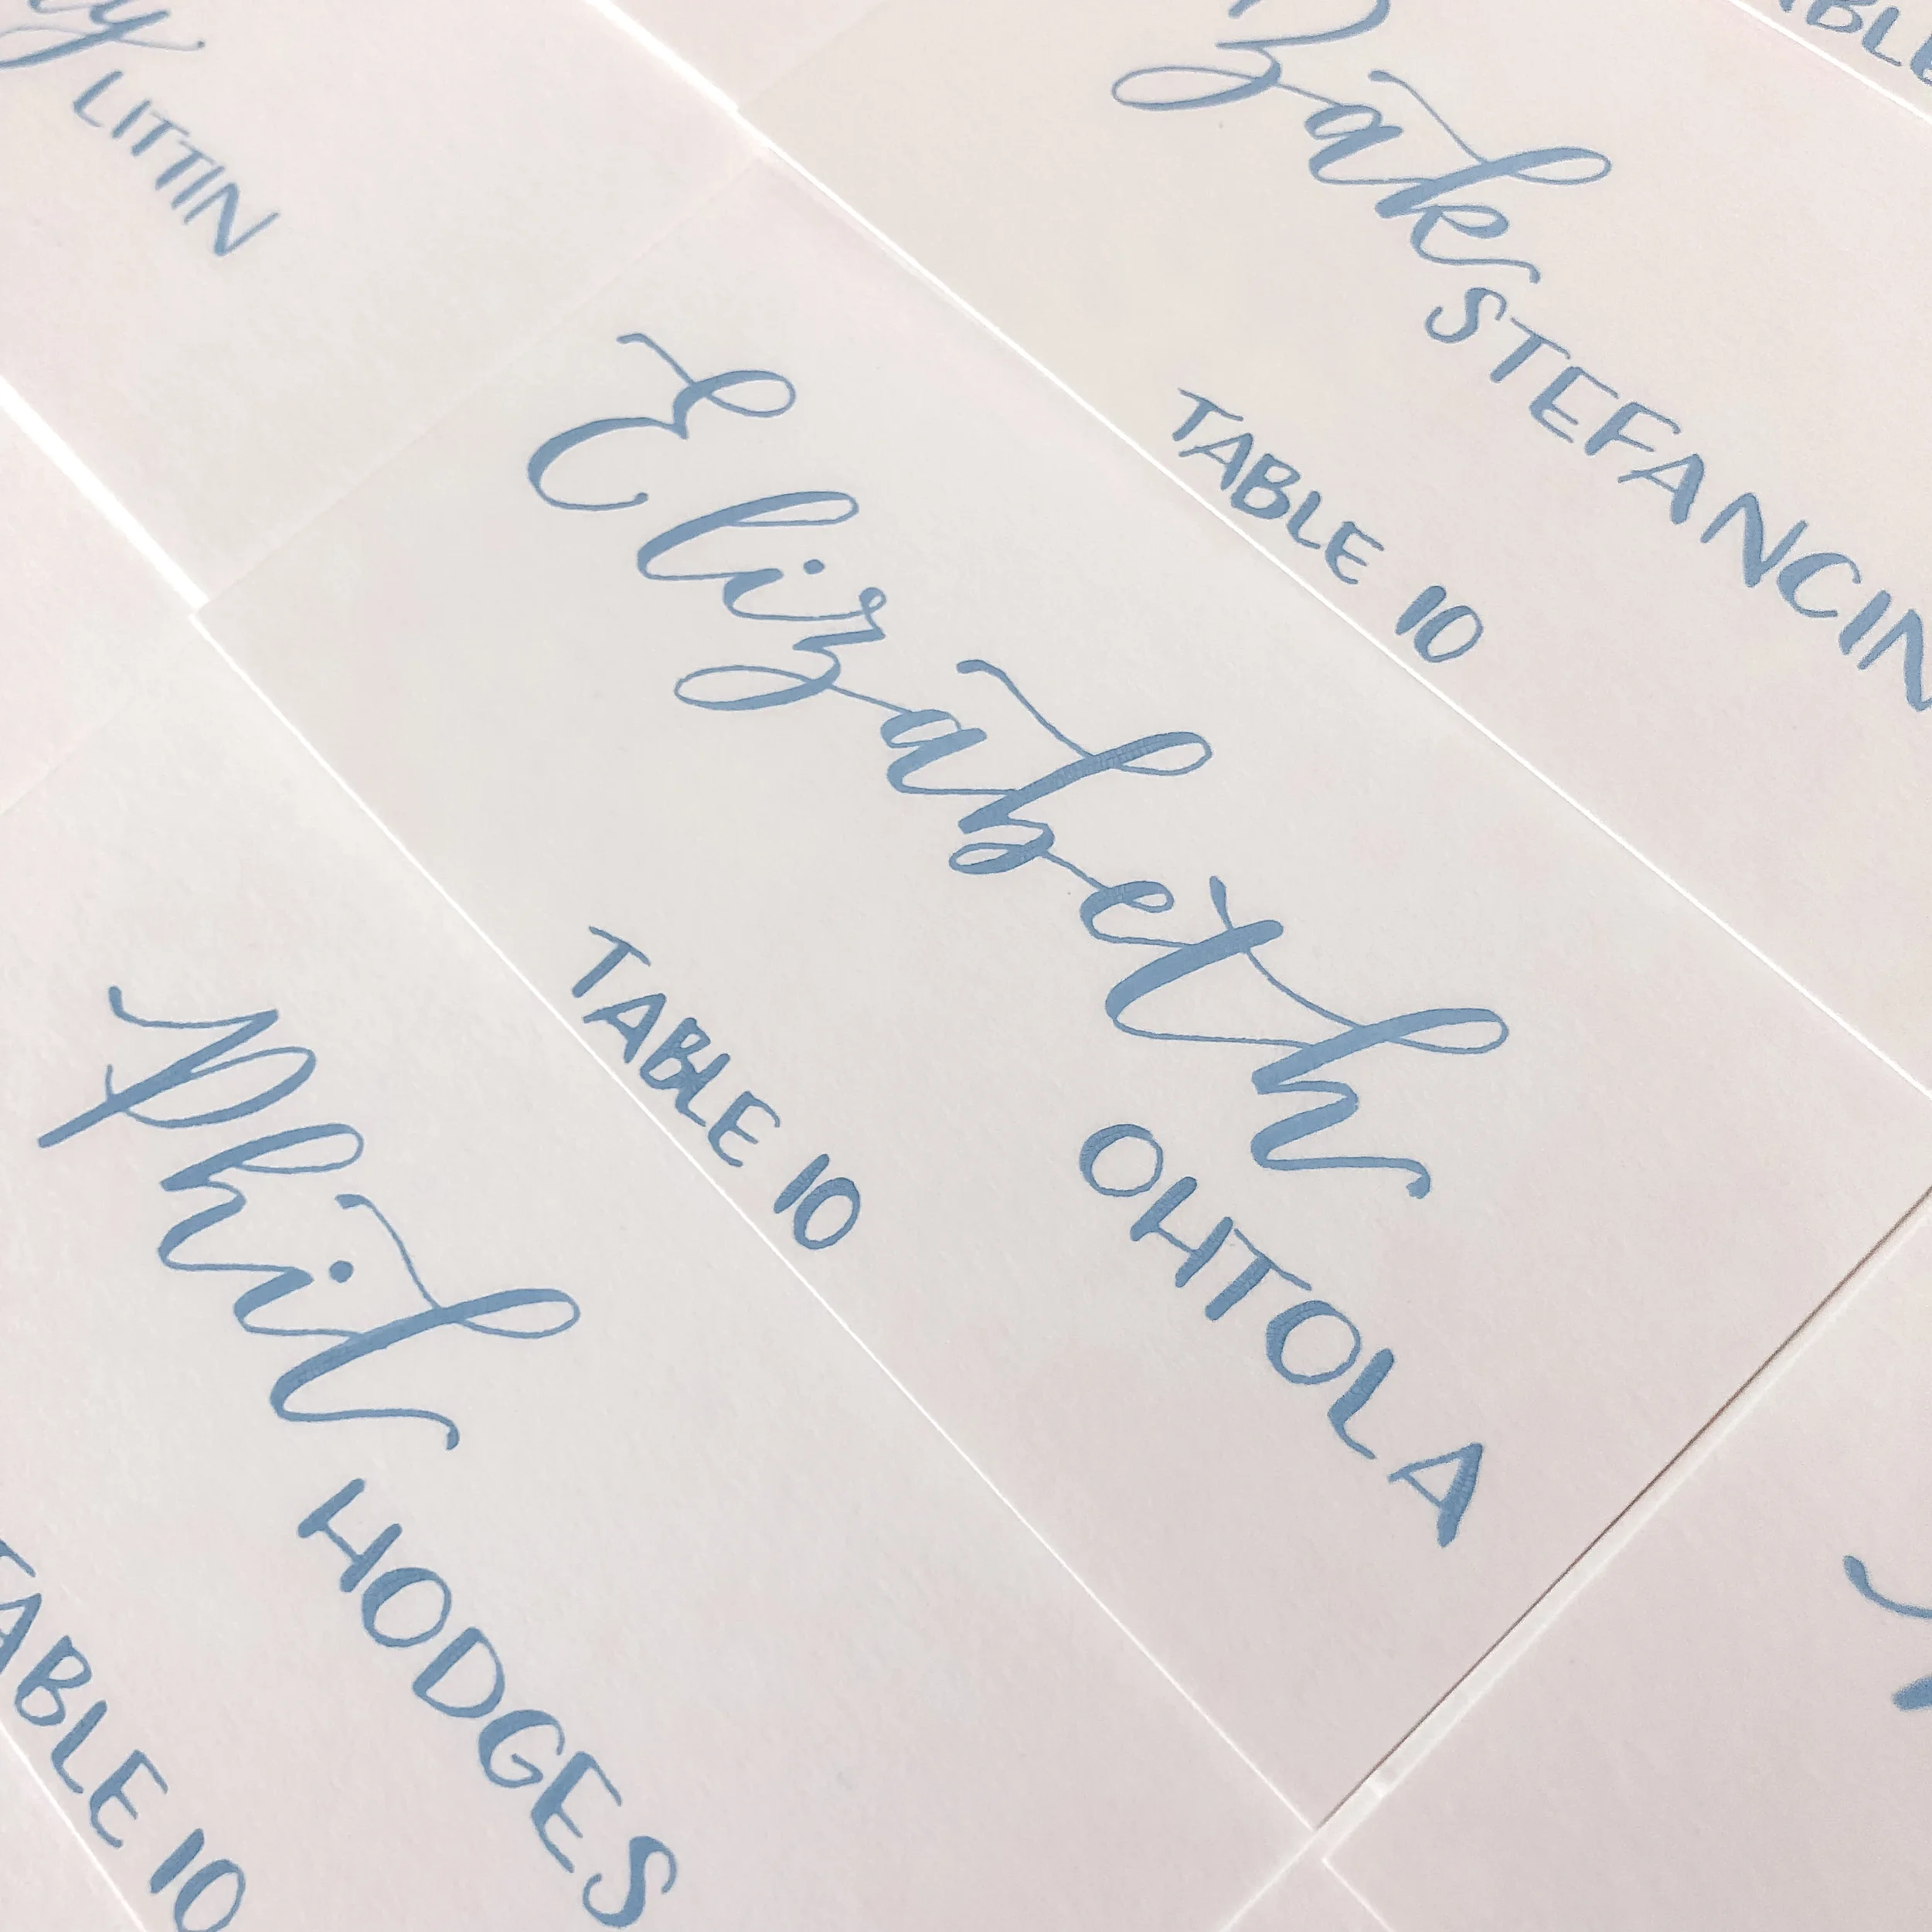 LITTIN
Zak
STEFANCIN
TABLE 10
Elizabeth
OHTOLA
TABLE 10
Phil
HODGES
TABLE 10